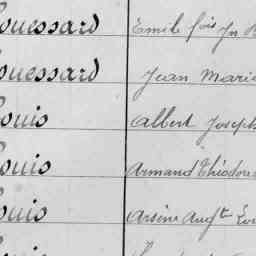 ouessard Emile fois Jn
ouessard Jean Marie
ouis Albert Joseph
ouis Armand Théodore
ouis Arsène Augte Lou